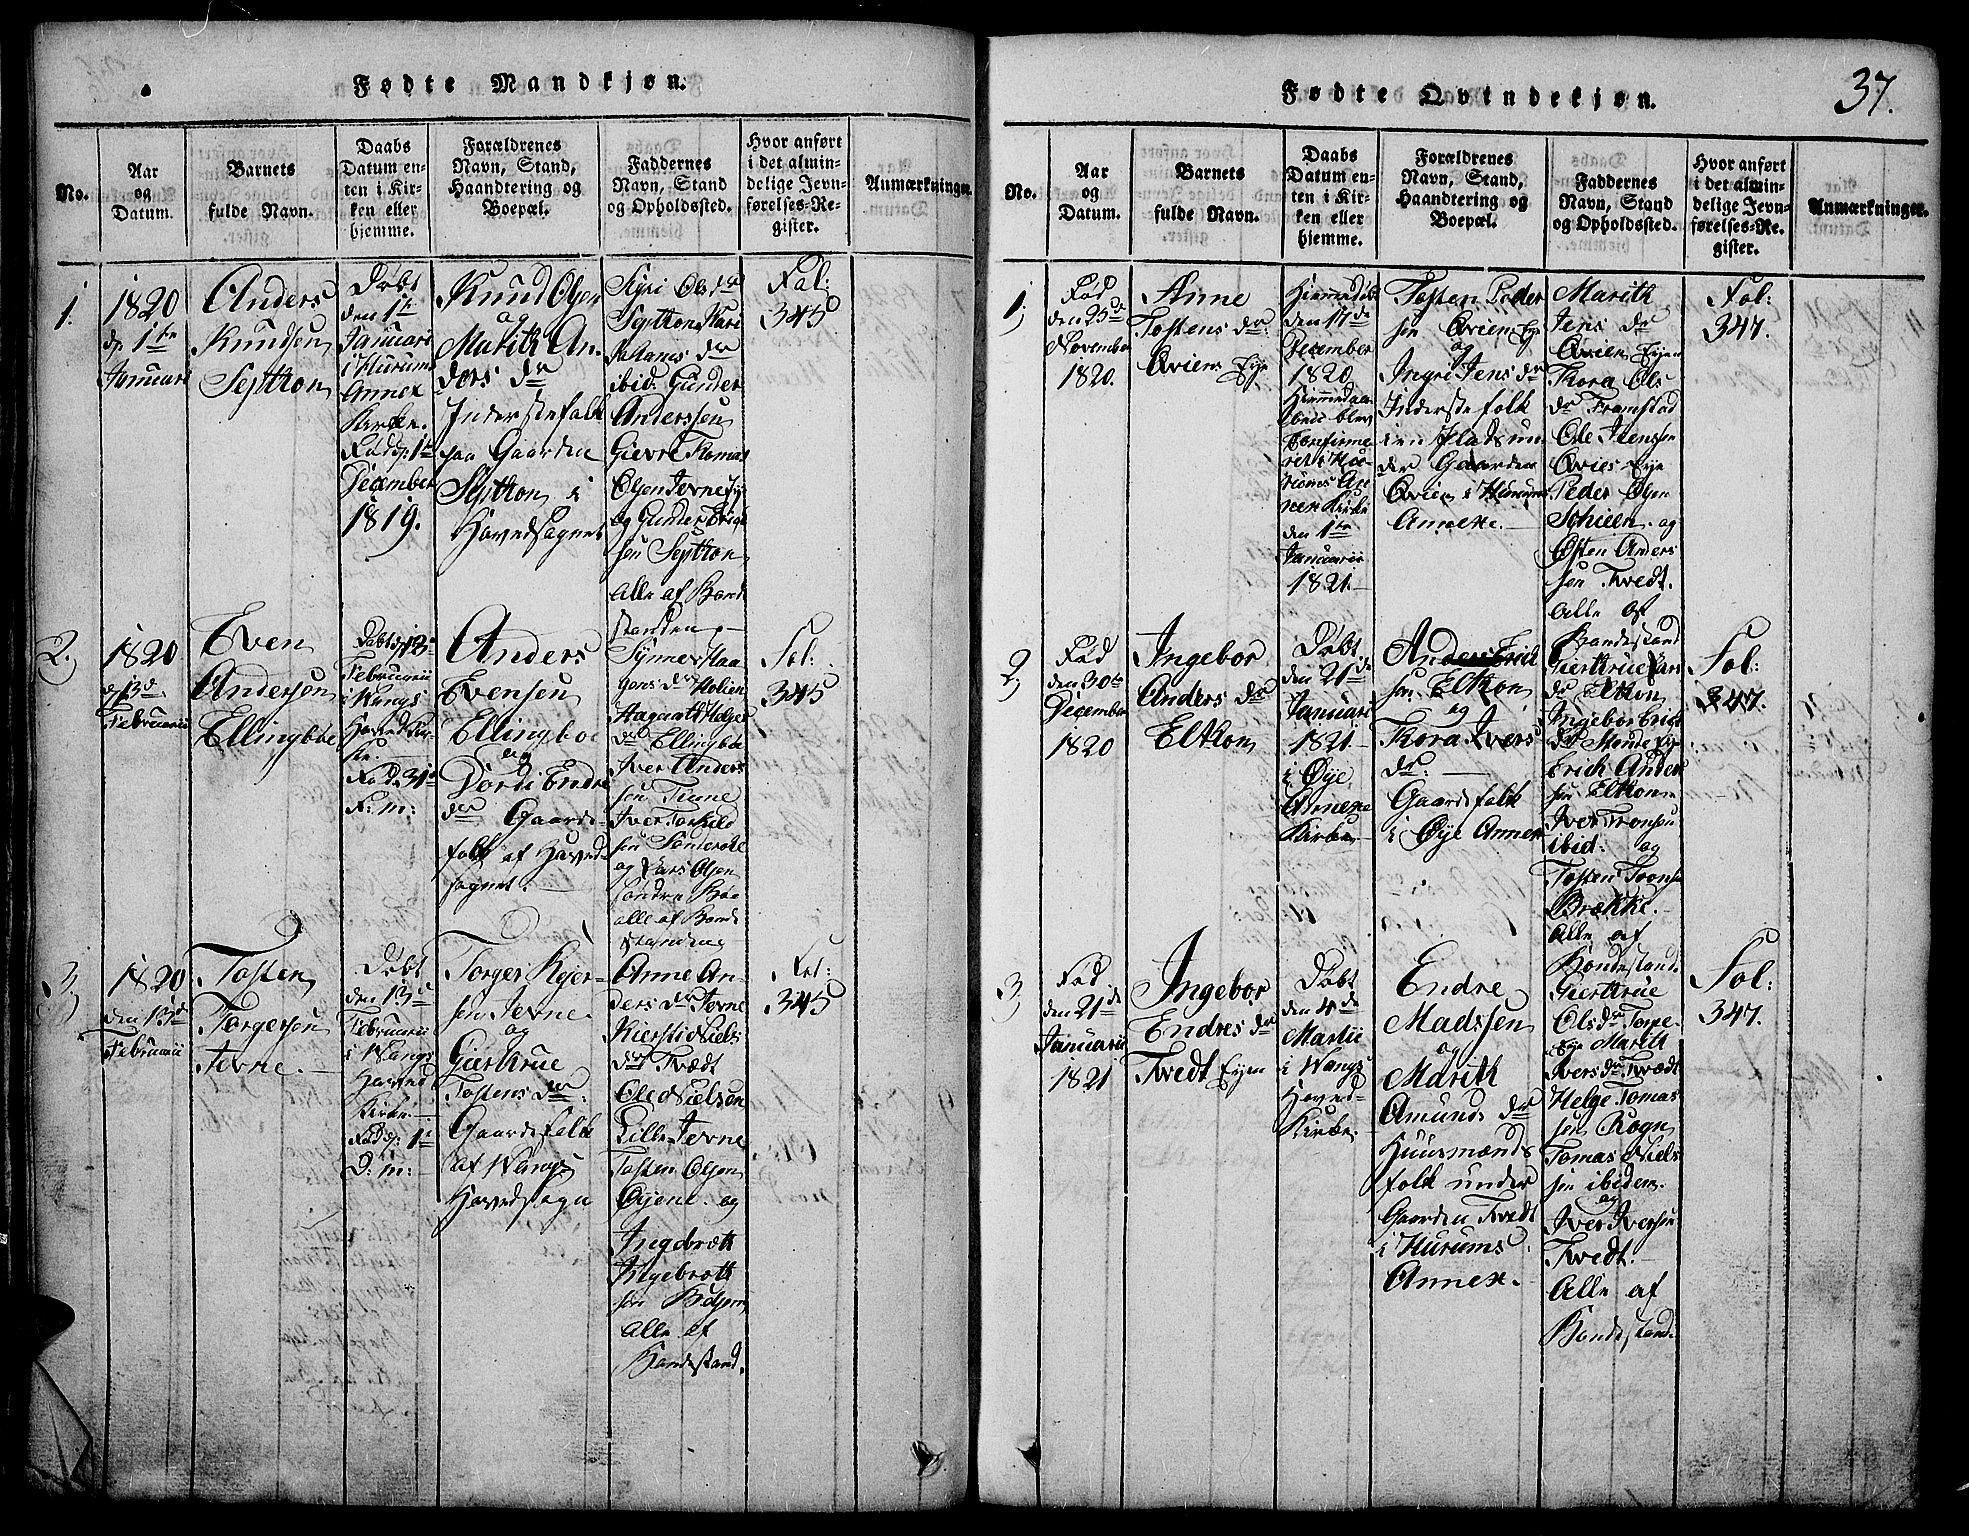 Fødte Mandkjøn.
No.
Aar
og
Datum.
Barnets
fulde Navn.
Daabs
Datum en-
ten i Kir-
ken eller
hjemme.
Forældrenes
Navn, Stand,
Haandtering og
Boepæl.
Faddernes
Navn, Stand
og Opholdssted.
Hvor anført
i det almin-
delige Jevn-
førelses-Re-
gister.
Anmærkninger.
1.
1820
d: 1te
Januari
Anders
Knudsen
Døbt
den 1te
Januari
i Hurums
Annex
Kirke.
Fød d: 1te
December
1819.
Knud Olsen
og
Marith An-
ders dr
Inderstefolk
paa Gaarden
i
Hovedsognet
Ols dr
Kari
dr
ibid: Gunder
Anderssen
Tomas
Olsen Jevne
og Gunder
sen
Alle af Bond
standen
Fol:
345
2.
1820
d: 13d
Februarii
Even
Andersen
Ellingbøe
Døbt d: 13
Februarii
i Wangs
Hoved Kir-
ke.
Fød d: 31te
F: m:
Anders
Evensen
Ellingbøe
og
Dordi Endre
dr Gaard-
folk af Hoved
sognet.
dr
Helge
dr Ellingbøe
Iver Anders
sen
Iver Torkild
sen
og Lars Olsen
Søndre Bøe
alle af Bond
standen
Fol:
345
3.
1820
den 13d
Februarii
Tosten
Torgersen
Jevne.
Døbt
den 13d
Februarii
i Wangs
Hoved
Kirke.
Fød d: 1te
D: m:
Torger
sen Jevne
og
Giertrue
Tostens dr
Gaardfolk
af Wangs
Hovedsogn
Anne An-
ders dr Jevne
Kiersti Niels
dr Twedt
Ole Nielsen
Lille Jevne
Tosten Olsen
Øyene og
Ingebræth
Ingebræth
sen
Alle af
Bondestand.
Fol:
345
37.
Fødte Qvindekjøn.
No.
Aar
og
Datum.
Barnets
fulde Navn.
Daabs
Datum en-
ten i Kir-
ken eller
hjemme.
Forældrenes
Navn, Stand,
Haandtering og
Boepæl.
Faddernes
Navn, Stand
og Opholdssted.
Hvor anført
i det almin-
delige Jevn-
førelses-Re-
gister.
Anmærkninger.
1,
Fød
den 23de
November
1820.
Anne
Tostens dr
Qviens Eje
Hiemmedøbt
den 17de
December
1820
Hiemmedaa-
ben blev
Confirme-
ret i Hu-
rums An-
nex Kirke
den 1te
Januarii
1821.
Tosten Peder
sen Qviens Eje
og
Ingri Jens dr
Inderstefolk
i en Plads un-
der Gaarden
Qvien i Hurum
Annex.
Marith
Jens dr
Qvien Eje
Tora Ols
dr Framstad
Ole Jensen
Qviens Eje
Peder Olsen
og
Østen Anders
sen Twedt.
Alle af
Bondestand
Fol:
347.
2,
Fød
den 30te
December
1820
Ingebor
Anders dr
Elton
Døbt
den 21de
Januari
1821.
i Øye
Annexe
Kirke
Anders Erich
sen Elton
og
Tora Ivers
dr:
Gaardsfolk
i Øye Annex
Giertrue Lars
dr Elton
Ingebor Erich
dr
Erich Ander
sen Elton
Iver Tronsen
ibid: og
Tosten Trons
Brække.
Alle af
Bondestand
Fol:
347.
3,
Fød
den 21de
Januarii
1821
Ingebor
Endres dr
Twedt Eje
Døbt
den 4de
Martii
i Wangs
Hoved-
Kirke.
Endre
Madssen
og
Marith
Amunds dr
Huusmands
folk under
Gaarden Twedt
i Hurums
Annex.
Giertrue
Ols dr
Eje Marith
Ivers dr Twædt
Helge Tomas
sen Rogn
Tomas Niels
sen ibidem
og
Iver Iversen
Twedt.
Alle af
Bondestand.
Fol:
347.